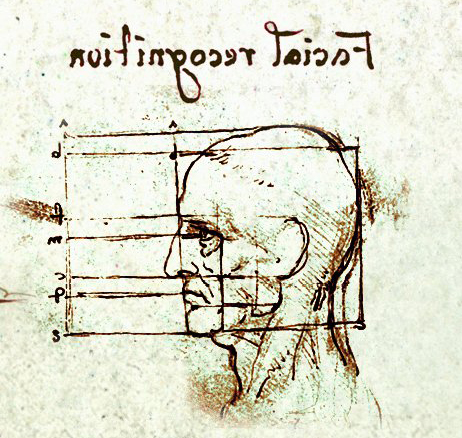 Facial recognition
A A
d
m
v
s